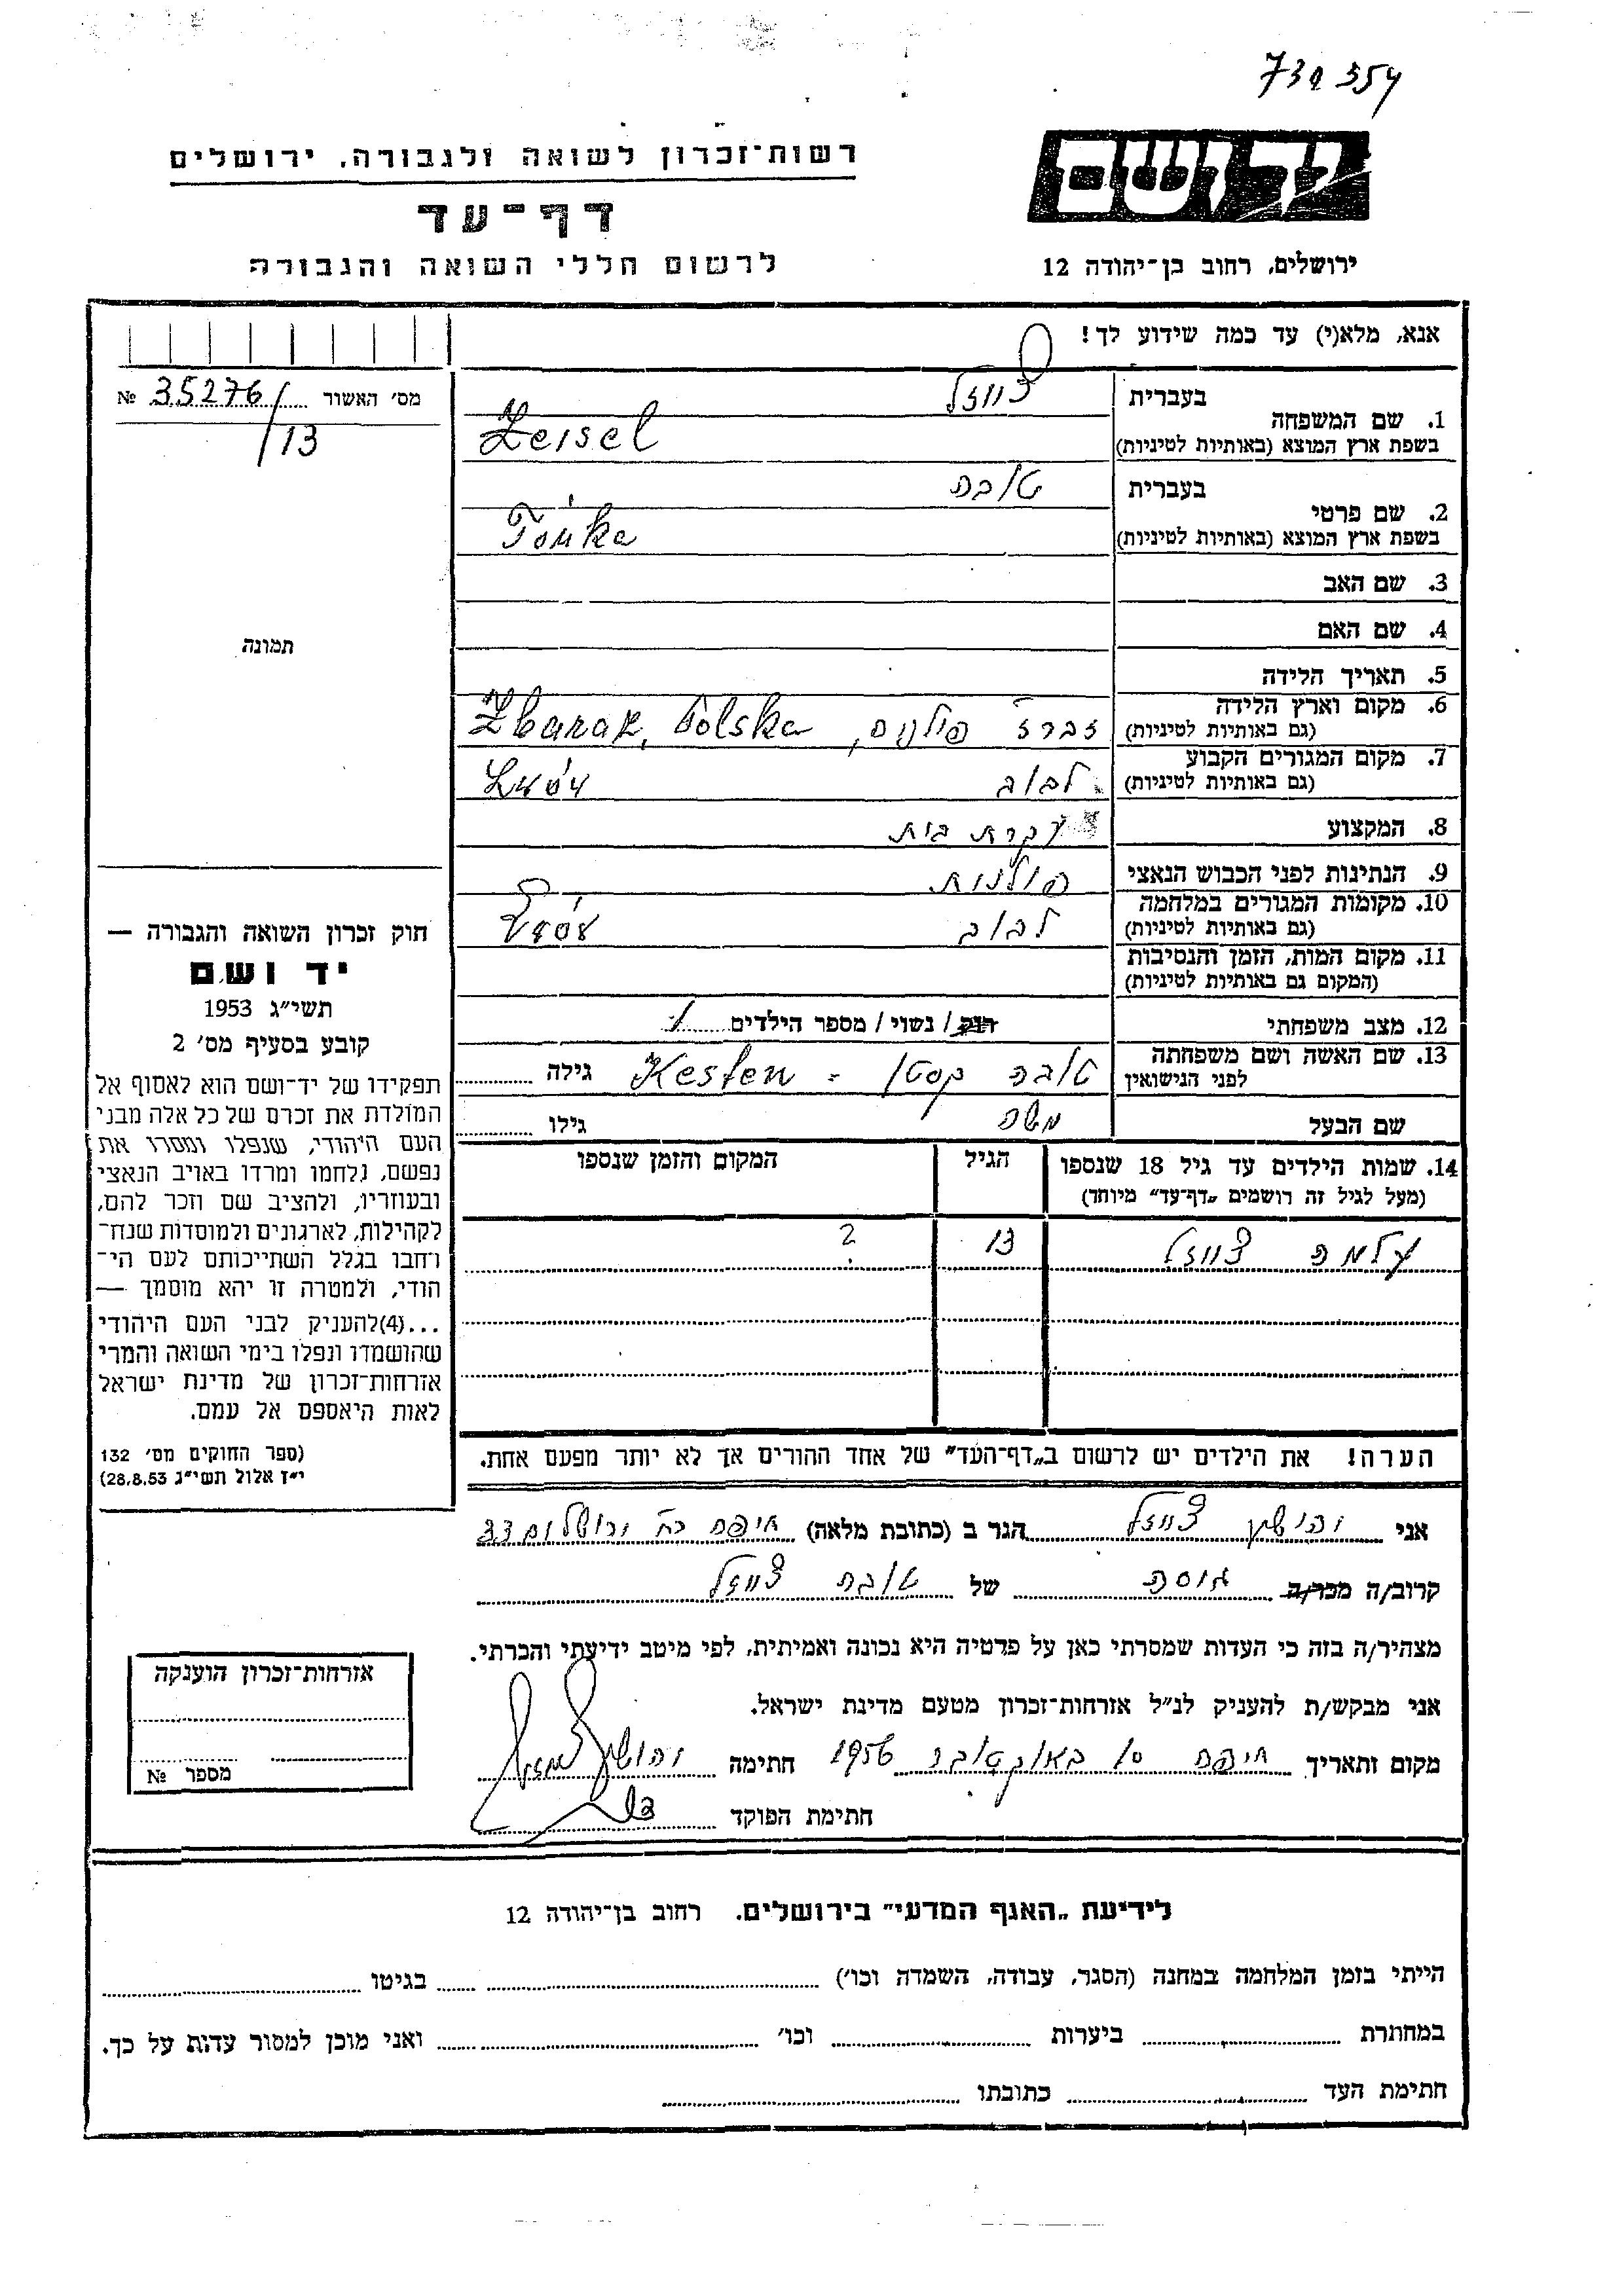 730354
רשות־זכרון לשואה ולגבורה, ירושלים
יד ושם
דף־עד
לרשום חללי השואה והגבורה
ירושלים, רחוב בן־יהודה 12
אנא, מלא(י) עד כמה שידוע לך!
מס׳ האשור 35276/13 №
1. שם המשפחה
בעברית צייזל
בשפת ארץ המוצא (באותיות לטיניות) Zeisel
2. שם פרטי
בעברית טובה
בשפת ארץ המוצא (באותיות לטיניות)
3. שם האב
4. שם האם
תמונה
5. תאריך הלידה
6. מקום וארץ הלידה
(גם באותיות לטיניות) זברז פולניה, Zbaraz, Polska
7. מקום המגורים הקבוע
(גם באותיות לטיניות) לבוב Lwów
8. המקצוע עקרת בית
9. הנתינות לפני הכבוש הנאצי פולנית
10. מקומות המגורים במלחמה
(גם באותיות לטיניות) לבוב Lwów
11. מקום המות, הזמן והנסיבות
(המקום גם באותיות לטיניות)
12. מצב משפחתי רוק / נשוי / מספר הילדים 1
13. שם האשה ושם משפחתה
לפני הנישואין טובה קסטן - Kesten גילה
שם הבעל משה גילו
14. שמות הילדים עד גיל 18 שנספו
(מעל לגיל זה רושמים „דף־עד״ מיוחד)
הגיל
המקום והזמן שנספו
עלמה צייזל 13 ?
הערה! את הילדים יש לרשום ב„דף־העד״ של אחד ההורים אך לא יותר מפעם אחת.
חוק זכרון השואה והגבורה —
יד ושם
תשי״ג 1953
קובע בסעיף מס׳ 2
תפקידו של יד־ושם הוא לאסוף אל
המולדת את זכרם של כל אלה מבני
העם היהודי, שנפלו ומסרו את
נפשם, נלחמו ומרדו באויב הנאצי
ובעוזריו, ולהציב שם וזכר להם,
לקהילות, לארגונים ולמוסדות שנח־
רחבו בגלל השתייכותם לעם הי־
הודי, ולמטרה זו יהא מוסמך —
...(4)להעניק לבני העם היהודי
שהושמדו ונפלו בימי השואה והמרי
אזרחות־זכרון של מדינת ישראל
לאות היאספם אל עמם.
(ספר החוקים מס׳ 132
י״ז אלול תשי״ג 28.8.53)
אני יהושע צייזל הגר ב (כתובת מלאה) חיפה רח׳ ירושלים 33
קרוב/ה מכר/ה גיסה של טובה צייזל
מצהיר/ה בזה כי העדות שמסרתי כאן על פרטיה היא נכונה ואמיתית, לפי מיטב ידיעתי והכרתי.
אני מבקש/ת להעניק לנ״ל אזרחות־זכרון מטעם מדינת ישראל.
מקום ותאריך חיפה 10 באוקטובר 1956 חתימה יהושע צייזל
חתימת הפוקד
אזרחות־זכרון הוענקה
מספר №
לידיעת „האגף המדעי״ בירושלים. רחוב בן־יהודה 12
הייתי בזמן המלחמה במחנה (הסגר, עבודה, השמדה וכו׳) בגיטו
במחתרת ביערות וכו׳ ואני מוכן למסור עדות על כך.
חתימת העד כתובתו